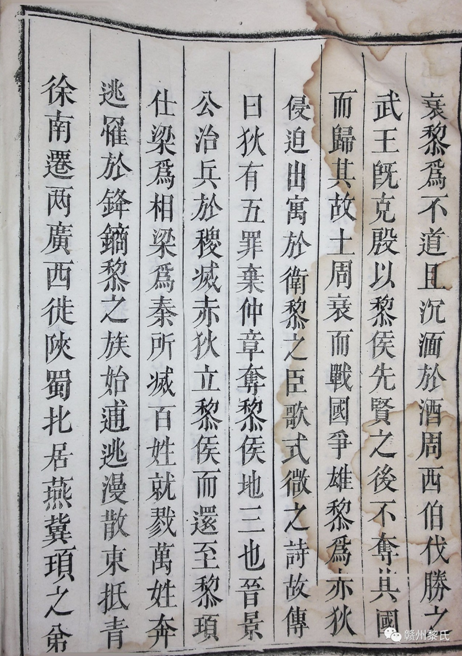 衰黎爲不道且沉湎於酒周西伯伐勝之
武王旣克殷以黎侯先賢之後不奪其國
而歸其故土周衰而戰國爭雄黎爲赤狄
侵迫出寓於衛黎之臣歌式微之詩故傳
曰狄有五罪棄仲章奪黎侯地三也晉景
公治兵於稷滅赤狄立黎侯而還至黎頊
仕梁爲相梁爲秦所滅百姓就戮萬姓奔
逃罹於鋒鏑黎之族始逋逃漫散東抵青
徐南遷两廣西徙陝蜀北居燕冀頊之弟
赣州黎氏